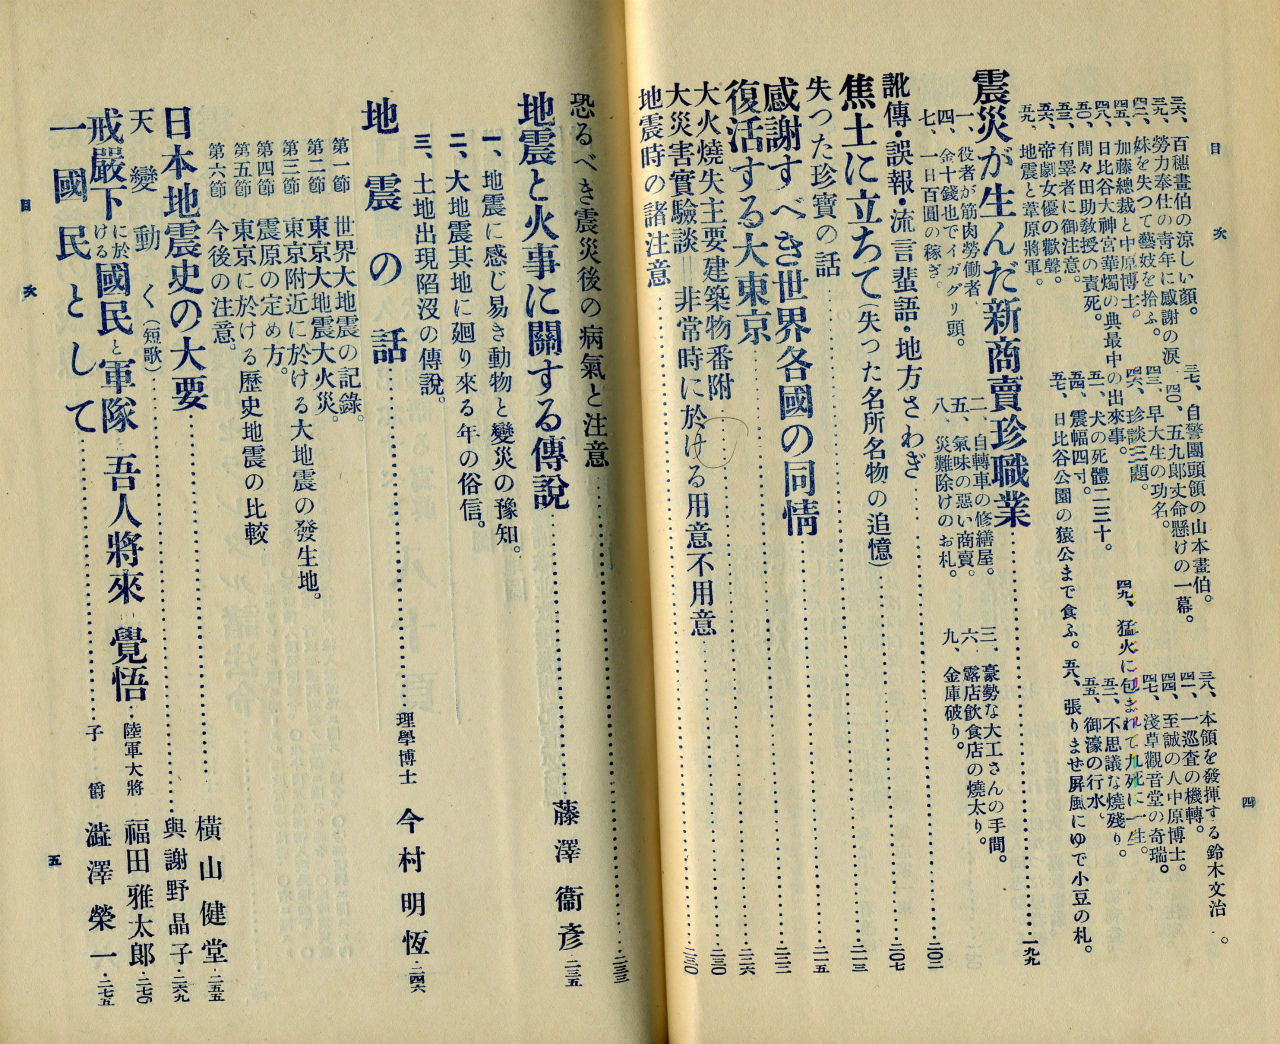 目次
四
三六、百穗畫伯の涼しい顏。
三七、自警團頭領の山本畫伯。
三八、本領を發揮する鈴木文治。
三九、勞力奉仕の靑年に感謝の淚
四〇、五九郞丈命懸けの一幕。
四一、一巡査の機轉。
四二、妹を失つて藝妓を拾ふ。
四三、早大生の功名。
四四、至誠の人中原博士。
四五、加藤總裁と中原博士。
四六、珍談三題。
四七、淺草觀音堂の奇瑞。
四八、日比谷大神宮華燭の典最中の出來事。
四九、猛火に包まれて九死に一生。
五〇、間々田助敎授の責死。
五一、犬の死體二三十。
五二、不思議な燒殘り。
五三、有髥者に御注意。
五四、震幅四寸。
五五、御濠の行水、
五六、帝劇女優の歡聲。
五七、日比谷公園の猿公まで食ふ。
五八、張りませ屛風にゆで小豆の札。
五九、地震と葦原將軍。
震災が生んだ新商賣珍職業……一九九
一、役者が筋肉勞働者
二、自轉車の修繕屋。
三、豪勢な大工さんの手間。
四、金十錢也でイガグリ頭。
五、氣味の惡い商賣。
六、露店飮食店の燒太り。
七、一日百圓の稼ぎ。
八、災難除けのお札。
九、金庫破り。
訛傳・誤報・流言蜚語・地方さわぎ……二〇二
焦土に立ちて(失つた名所名物の追憶)……二〇七
失つた珍寶の話……二一三
感謝すべき世界各國の同情……二一五
復活する大東京……二二二
大火燒失主要建築物番附……二二六
大災害實驗談=非常時に於ける用意不用意……二三〇
地震時の諸注意……二三〇
恐るべき震災後の病氣と注意……二三三
地震と火事に關する傳說……藤澤衞彥・二三五
一、地震に感じ易き動物と變災の豫知。
二、大地震其地に廻り來る年の俗信。
三、土地出現陷沒の傳說。
地震の話……理學博士 今村明恆・二四六
第一節 世界大地震の記錄。
第二節 東京大地震大火災。
第三節 東京附近に於ける大地震の發生地。
第四節 震原の定め方。
第五節 東京に於ける歷史地震の比較、
第六節 今後の注意。
日本地震史の大要……橫山健堂・二五五
天變動く(短歌)……與謝野晶子・二六九
戒嚴下に於ける國民と軍隊と吾人將來の覺悟・陸軍大將 福田雅太郞・二七〇
一國民として……子爵 澁澤榮一・二七五
目次
五